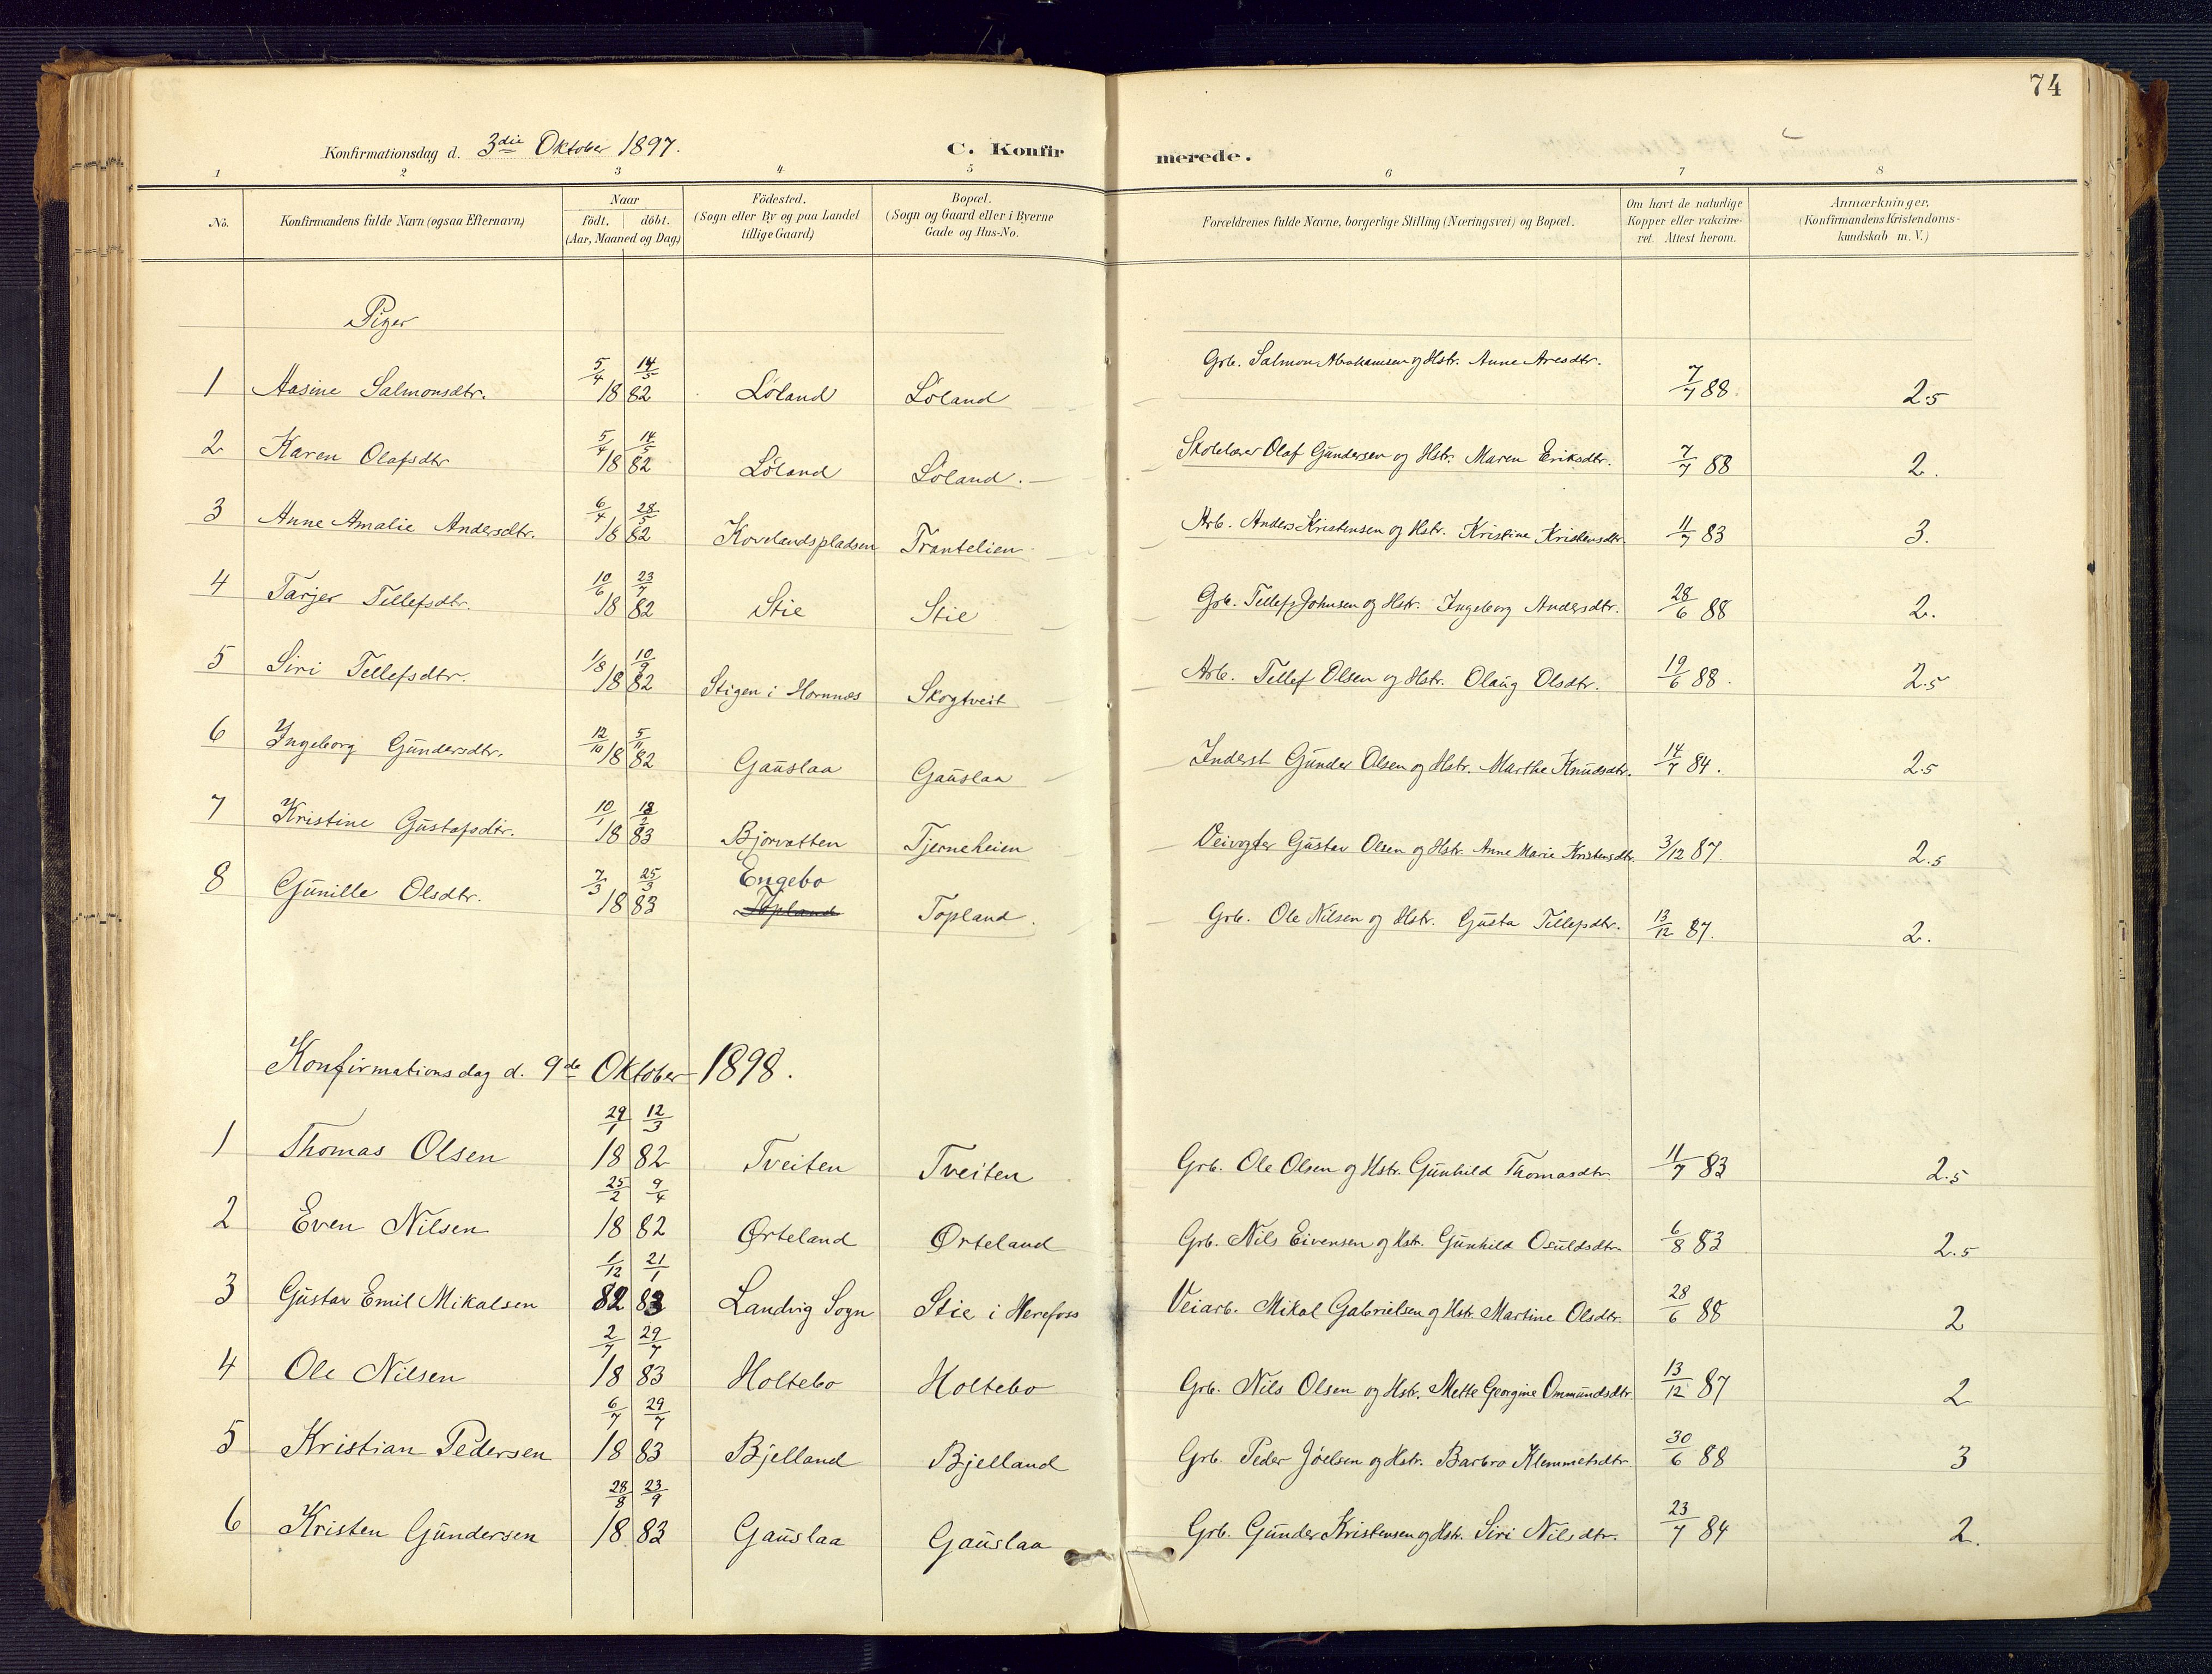 74
Konfirmationsdag d. 3die Oktober 1897. C. Konfirmerede.
1 2 3 4 5 6 7 8
No. Konfirmandens fulde Navn (ogsaa Efternavn) Naar födt. döbt. (Aar, Maaned og Dag) Födested. (Sogn eller By og paa Landet tillige Gaard) Bopæl. (Sogn og Gaard eller i Byerne Gade og Hus-No. Forældrenes fulde Navne, borgerlige Stilling (Næringsvei) og Bopæl. Om havt de naturlige Kopper eller vakcineret. Attest herom. Anmærkninger. (Konfirmandens Kristendomskundskab m. V.)
Piger
1 Aasine Salmonsdtr. 5/4 14/5 18 82 Löland Löland Grb. Salmon Abrahamsen og Hstr. Anne Aresdtr. 7/7 88. 2.5
2 Karen Olafsdtr 5/4 14/5 18 82 Löland Löland. Skolelærer Olaf Gundersen og Hstr. Maren Eriksdtr. 7/7 88 2.
3 Anne Amalie Andersdtr. 6/4 28/5 18 82 Kovelandspladsen Trantelien Arb. Anders Kristensen og Hstr. Kristine Kristensdtr. 11/7 83 3.
4 Tarjer Tellefsdtr. 10/6 23/7 18 82 Stie Stie Grb. Tellef Johnsen og Hstr. Ingeborg Andersdtr. 28/6 88 2.
5 Siri Tellefsdtr. 1/8 10/9 18 82 Stigen i Hornnes Skogtveit Arb. Tellef Olsen og Hstr. Olaug Olsdtr. 19/6 88. 2.5
6 Ingeborg Gundersdtr. 12/10 5/11 18 82 Gauslaa Gauslaa Inderst Gunder Olsen og Hstr. Marthe Knudsdtr. 14/7 84. 2.5
7 Kristine Gustafsdtr. 10/1 18/2 18 83 Bjorvatten Tjerneheien Veivogter Gustav Olsen og Hstr. Anne Marie Kristensdtr. 3/12 87. 2.5
8 Gunille Olsdtr. 7/3 25/3 18 83 Engebo Topland Topland. Grb. Ole Nilsen og Hstr. Gusta Tellefsdtr. 13/12 87. 2.
Konfirmationsdag d. 9de Oktober 1898.
1 Thomas Olsen 29/1 12/3 18 82 Tveiten Tveiten Grb. Ole Olsen og Hstr. Gunhild Thomasdtr. 11/7 83 2.5
2 Even Nilsen 25/2 9/4 18 82 Ørteland Ørteland Grb. Nils Eivensen og Hstr. Gunhild Osuldsdtr. 6/8 83 2.5
3 Gustav Emil Mikalsen 1/12 21/1 82 83 Landvig Sogn Stie i Herefoss Veiarb. Mikal Gabrielsen og Hstr. Martine Olsdtr. 28/6 88 2
4 Ole Nilsen 2/7 29/7 18 83 Holtebo Holtebo Grb. Nils Olsen og Hstr. Mette Georgine Ommundsdtr. 13/12 87 2
5 Kristian Pedersen 6/7 29/7 18 83 Bjelland Bjelland Grb. Peder Jöelsen og Hstr. Barbro Klemmetsdtr 30/6 88 3
6 Kristen Gundersen 28/8 23/9 18 83 Gauslaa Gauslaa Grb. Gunder Kristensen og Hstr. Siri Nilsdtr. 23/7 84 2.